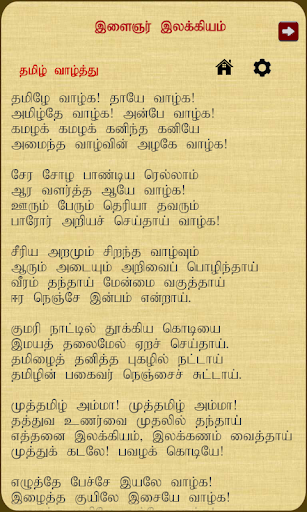 இளைஞர் இலக்கியம்
தமிழ் வாழ்த்து
தமிழே வாழ்க! தாயே வாழ்க!
அமிழ்தே வாழ்க! அன்பே வாழ்க!
கமழக் கமழக் கனிந்த கனியே
அமைந்த வாழ்வின் அழகே வாழ்க!
சேர சோழ பாண்டிய ரெல்லாம்
ஆர வளர்த்த ஆயே வாழ்க!
ஊரும் பேரும் தெரியா தவரும்
பாரோர் அறியச் செய்தாய் வாழ்க!
சீரிய அறமும் சிறந்த வாழ்வும்
ஆரும் அடையும் அறிவைப் பொழிந்தாய்
வீரம் தந்தாய் மேன்மை வகுத்தாய்
ஈர நெஞ்சே இன்பம் என்றாய்.
குமரி நாட்டில் தூக்கிய கொடியை
இமயத் தலைமேல் ஏறச் செய்தாய்.
தமிழைத் தனித்த புகழில் நட்டாய்
தமிழின் பகைவர் நெஞ்சைச் சுட்டாய்.
முத்தமிழ் அம்மா! முத்தமிழ் அம்மா!
தத்துவ உணர்வை முதலில் தந்தாய்
எத்தனை இலக்கியம், இலக்கணம் வைத்தாய்
முத்துக் கடலே! பவழக் கொடியே!
எழுத்தே பேச்சே இயலே வாழ்க!
இழைத்த குயிலே இசையே வாழ்க!